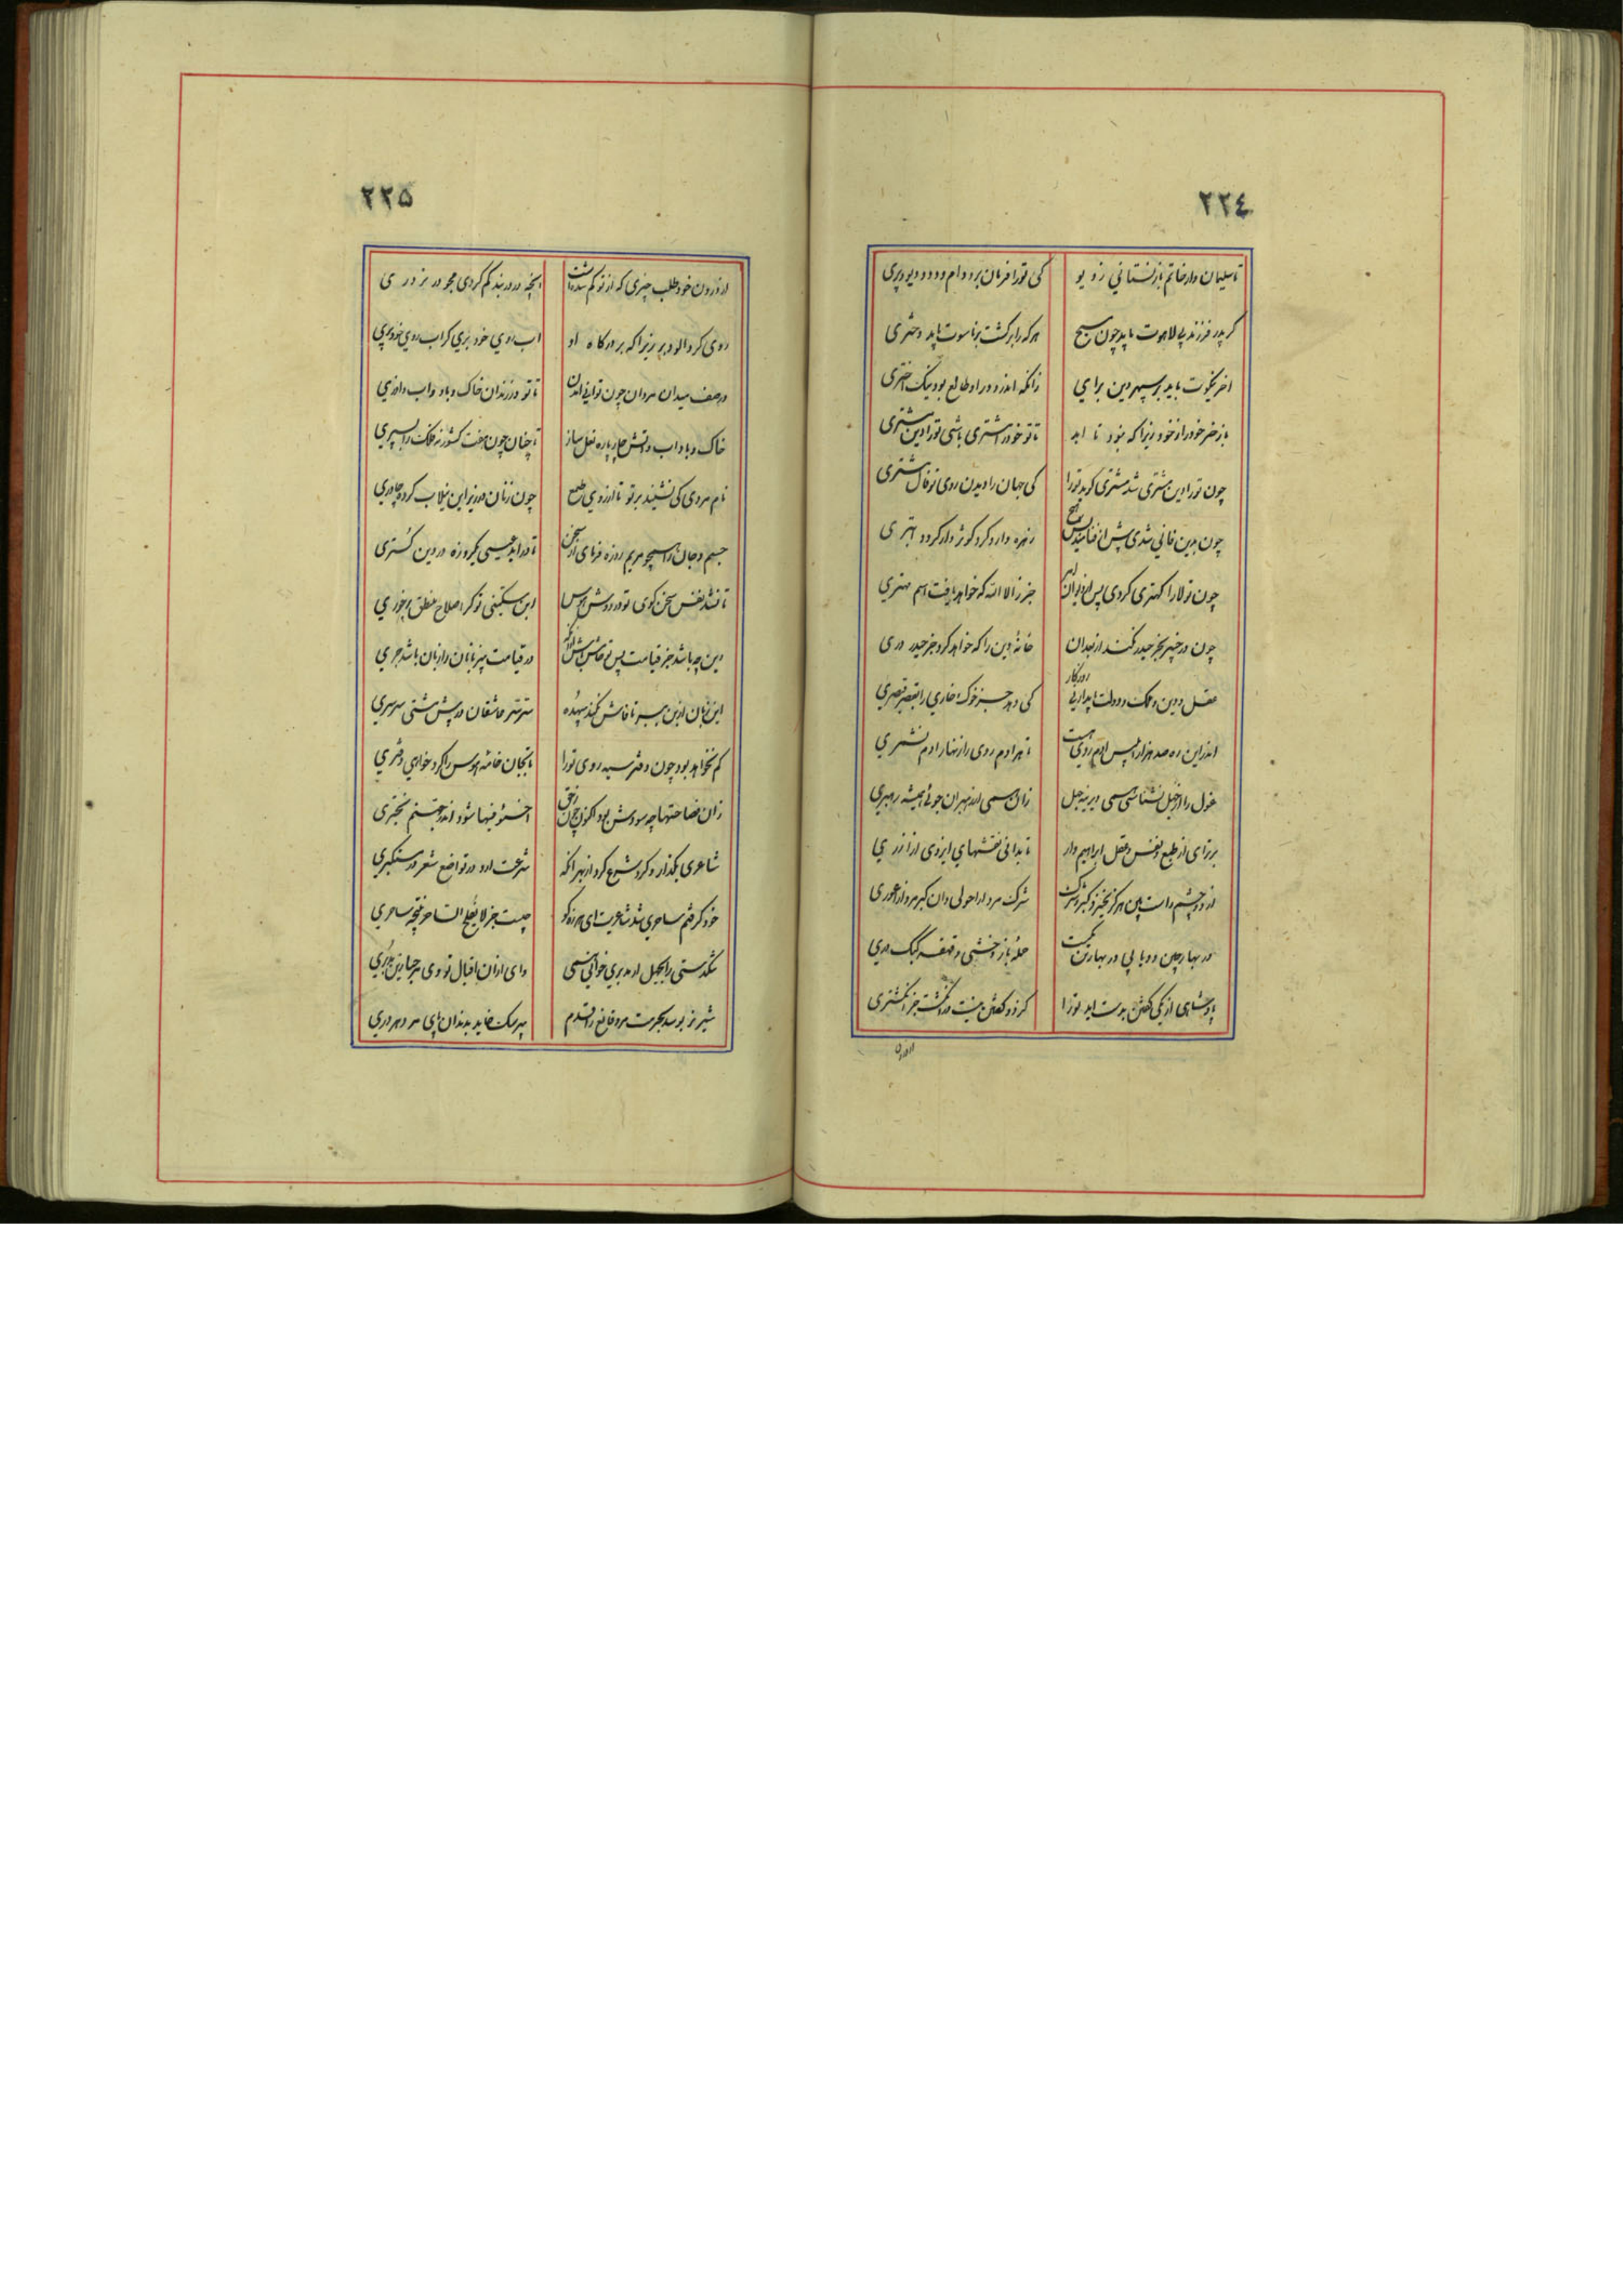 ٢٢٤
تا سلیمان وار خاتم باز نستانی ز دیو
کی تورا فرمان برد دام و دد و دیو و پری
گر پدر فرزند پی لاهوت باید چون مسیح
هر که را برگشت بر ناسوت باید دختری
اختر نیکوت باید بر سپهر دین برای
زانکه اندر دور او طالع بود نیک اختری
باز خر خود را از خود زیرا که نبود تا ابد
تا تو خود را مشتری باشی تورا دین مشتری
چون تورا دین مشتری شد مشتری گوید تورا
کی جهان را دیدن روی تو فال مشتری
چون بدین فانی شدی پیش از فنا
زهره دارد گرد گرد
چون تو لا را کهتری کردی پس
جز ز الا الله که خواهد یافت اسم مهتری
چون در خیبر بجز حیدر نکند از بعد آن
خانه دین را که خواهد کرد جز حیدر دری
عقل و دین و ملک و دولت باید ارنی روزگار
کی دهد جز خوک خاری را بقصر قیصری
اندر این ره صد هزار ابلیس آدم روی هست
تا هر آدم روی را زنهار آدم نشمری
غول را از خیل نشناسی همی در نیه جهل
زان همی از رهبران جوئی همیشه رهبری
برتر ای از طبع و نفس و عقل ابراهیم وار
تا بدانی نقشهای ایزدی از آزری
از دو چشم راست بین هرگز نخیزد کبر و شرک
شرک مرد از احولی دان کبر مرد از اعوری
در بهار چین دو یابی در بهار تن یکیست
حمله باز خشن و قهقه کبک دری
پادشاهی از یکی گفتن بدست اید تورا
کز دو گفتن نیست در انگشت جز انگشتری
از درون
٢٢٥
از درون خود طلب چیزی که از تو گم شده است
انچه در دربند گم کردی مجو در بر دری
روی گرد الود بر زیرا که بر درگاه او
اب روی خود بری گر اب روی خود بری
در صف میدان مردان چون توانی امدن
تا تو در زندان خاک و باد و اب و اذری
خاک و باد و اب و اتش چار پاره نعل ساز
تا چنان چون هفت کشور نه فلک را بسپری
نام مردی کی نشیند بر تو تا از روی طبع
چون زنان در زیر این نیلاب کرده چادری
جسم و جان را همچو مریم روزه فرمای از سخن
تا در اید عیسی یکروزه در دین گستری
تا نشد نفس سخن گوی تو در درس هوس
این چه باشد جز قیامت پس تو خامش باش از انک
در قیامت بی زبانان را زبان باشد جری
این زبان از بن ببر تا فاش نکند بیهده
سر سر عاشقان در پیش مشتی سرسری
کم نخواهد بود چون دفتر سیه روی تورا
تا بجان خامه هوس را کرد خواهی دفتری
زان فصاحتها چه سودش بود اکنون چون ز حق
اخسئو فیها شنود اندر جهنم بحتری
شاعری بگذار و گرد شرع گرد از بهر انکه
شرعت ارد در تواضع شعر در مستکبری
خود گرفتم ساحری شد شاعریت ای هرزه گو
چیست جز لا یفلح الساحر نتیجه ساحری
تنگدستی را بجهل از مدبری خوانی همی
وای از ان اقبال تو وی مرحبا زین مدبری
شیر نر بوسد بحرمت مرد قانع را قدم
پیر سگ خاید بدندان پای مرد هر دری